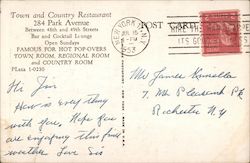 Town and Country Restaurant
284 Park Avenue
Between 48th and 49th Streets
Bar and Cocktail Lounge
Open Sundays
FAMOUS FOR HOT POP-OVERS
TOWN ROOM, REGIONAL ROOM
and COUNTRY ROOM
PLaza
POST CARD
NEW YORK, N.Y.
JUL 15
PM
1953
Hi Jim
How is everything
with you. Hope you
are enjoying this fine
weather Love Sis
Mr James
7 Mt Pleasant Pk
Rochester NY